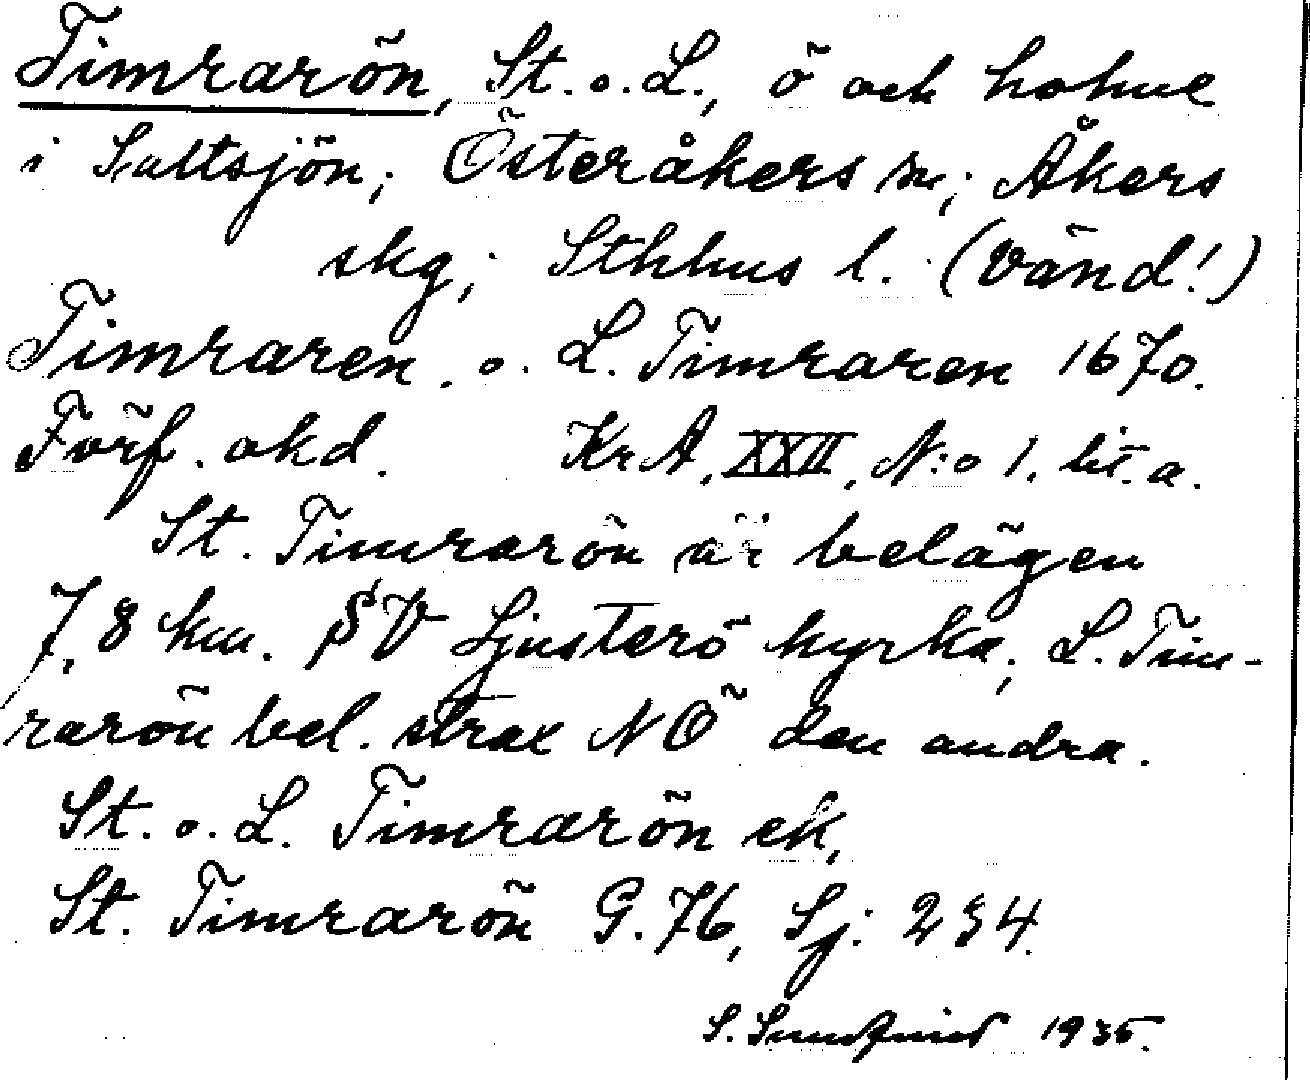 Timrarön, St. o. L., ö och holme
i Saltsjön; Österåkers sn; Åkers
skg; Sthlms l. (vänd!)
Timraren. o. L. Timraren 1670.
Förf. okd. KrA, XXII, N:o 1. lit. a.
St. Timrarön är belägen
7,8 km. SV Ljusterö kyrka; L. Tim-
rarön bel. strax NÖ den andra.
St. o. L. Timrarön ek,
St. Timrarön G. 76, Sj: 234.
S. 1935.